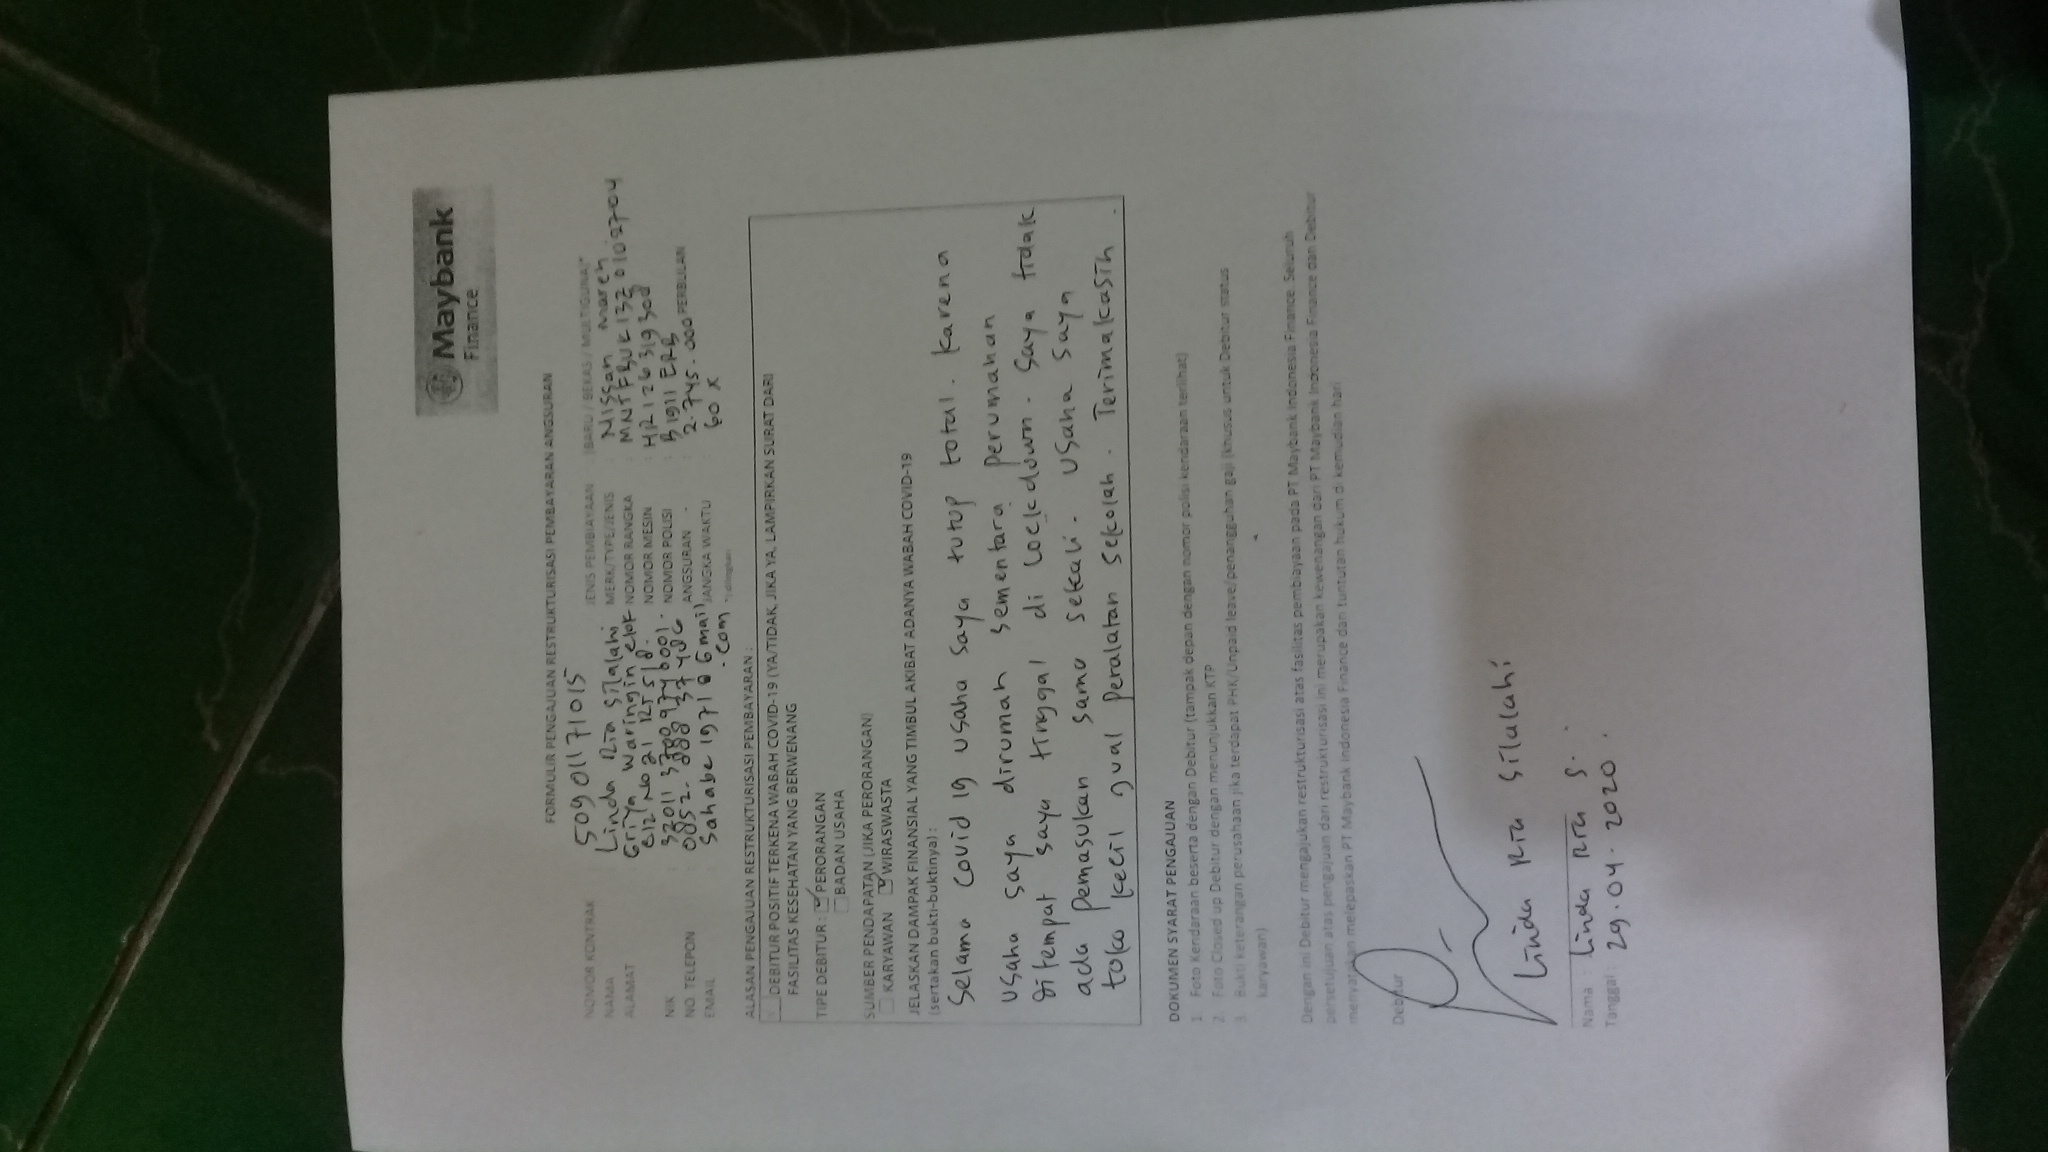 Maybank
Finance
FORMULIR PENGAJUAN RESTRUKTURISASI PEMBAYARAN ANGSURAN
NOMOR KONTRAK : 50901171015 JENIS PEMBIAYAAN : (BARU / BEKAS / MULTIGUNA)*
NAMA : Linda Ria Silalahi MERK/TYPE/JENIS : Nissan march
ALAMAT : Griya Waringin elok NOMOR RANGKA
No 21 RT 5/8. NOMOR MESIN : HR12631930
NIK NOMOR POLISI : B 1911 ERB
NO. TELEPON : 0852. 888 37486 ANGSURAN : 2.745.000 PERBULAN
EMAIL : Sahabe1971@Gmail JANGKA WAKTU : 60 x
.com
ALASAN PENGAJUAN RESTRUKTURISASI PEMBAYARAN :
DEBITUR POSITIF TERKENA WABAH COVID-19 (YA/TIDAK, JIKA YA, LAMPIRKAN SURAT DARI
FASILITAS KESEHATAN YANG BERWENANG
TIPE DEBITUR : PERORANGAN
BADAN USAHA
SUMBER PENDAPATAN (JIKA PERORANGAN)
KARYAWAN WIRASWASTA
JELASKAN DAMPAK FINANSIAL YANG TIMBUL AKIBAT ADANYA WABAH COVID-19
(sertakan bukti-buktinya) :
Selama Covid 19 usaha saya tutup total. Karena
usaha saya dirumah sementara perumahan
ditempat saya tinggal di lockdown. Saya tidak
ada pemasukan sama sekali. Usaha saya
toko kecil jual Peralatan sekolah. Terimakasih.
DOKUMEN SYARAT PENGAJUAN
1. Foto Kendaraan beserta dengan Debitur (tampak depan dengan nomor polisi kendaraan terlihat)
2. Foto Closed up Debitur dengan menunjukkan KTP
3. Bukti keterangan perusahaan jika terdapat PHK/Unpaid leave/penangguhan gaji (khusus untuk Debitur status
karyawan)
Dengan ini Debitur mengajukan restrukturisasi atas fasilitas pembiayaan pada PT Maybank Indonesia Finance. Seluruh
persetujuan atas pengajuan dari restrukturisasi ini merupakan kewenangan dari PT Maybank Indonesia Finance dan Debitur
menyatakan melepaskan PT Maybank Indonesia Finance dari tuntutan hukum di kemudian hari
Debitur
Linda Ria Silalahi
Nama : Linda Ria S.
Tanggal : 29.04.2020.